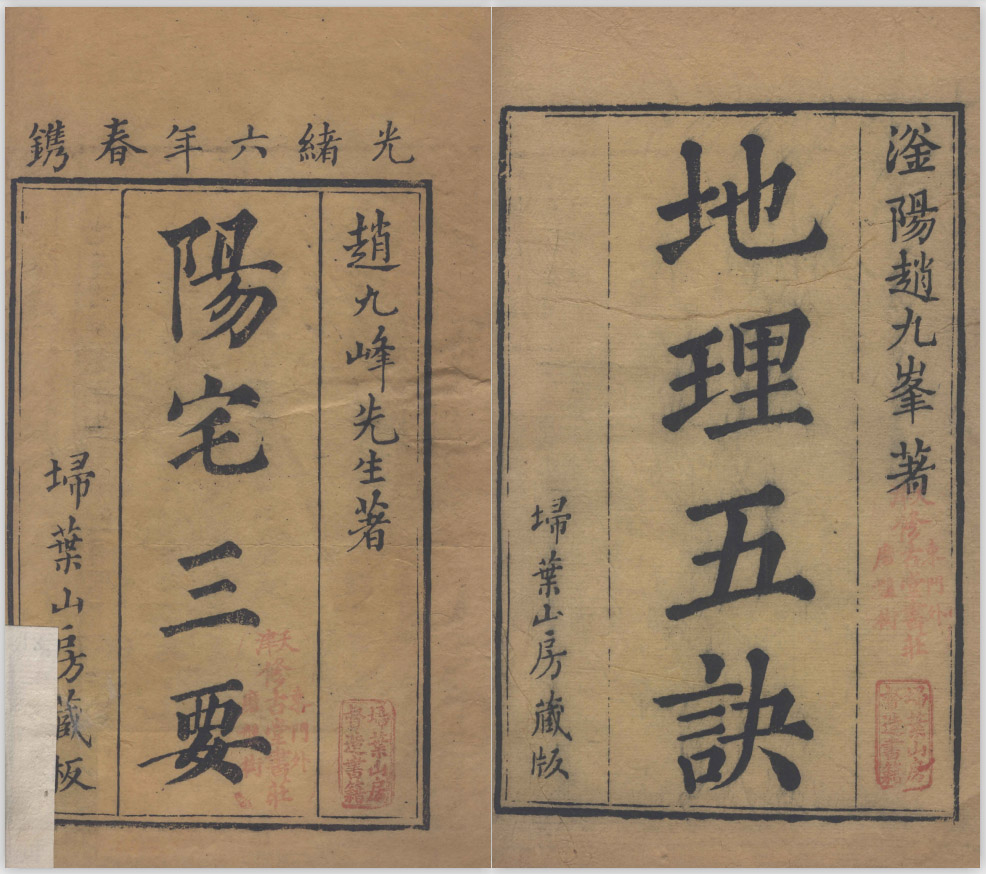 滏陽趙九峯著
地理五訣
埽葉山房藏版
埽葉山房
督造書籍
光緒六年春鐫
趙九峰先生著
陽宅三要
埽葉山房藏板
埽葉山房
督造書籍
天津
修古堂書莊
東門外